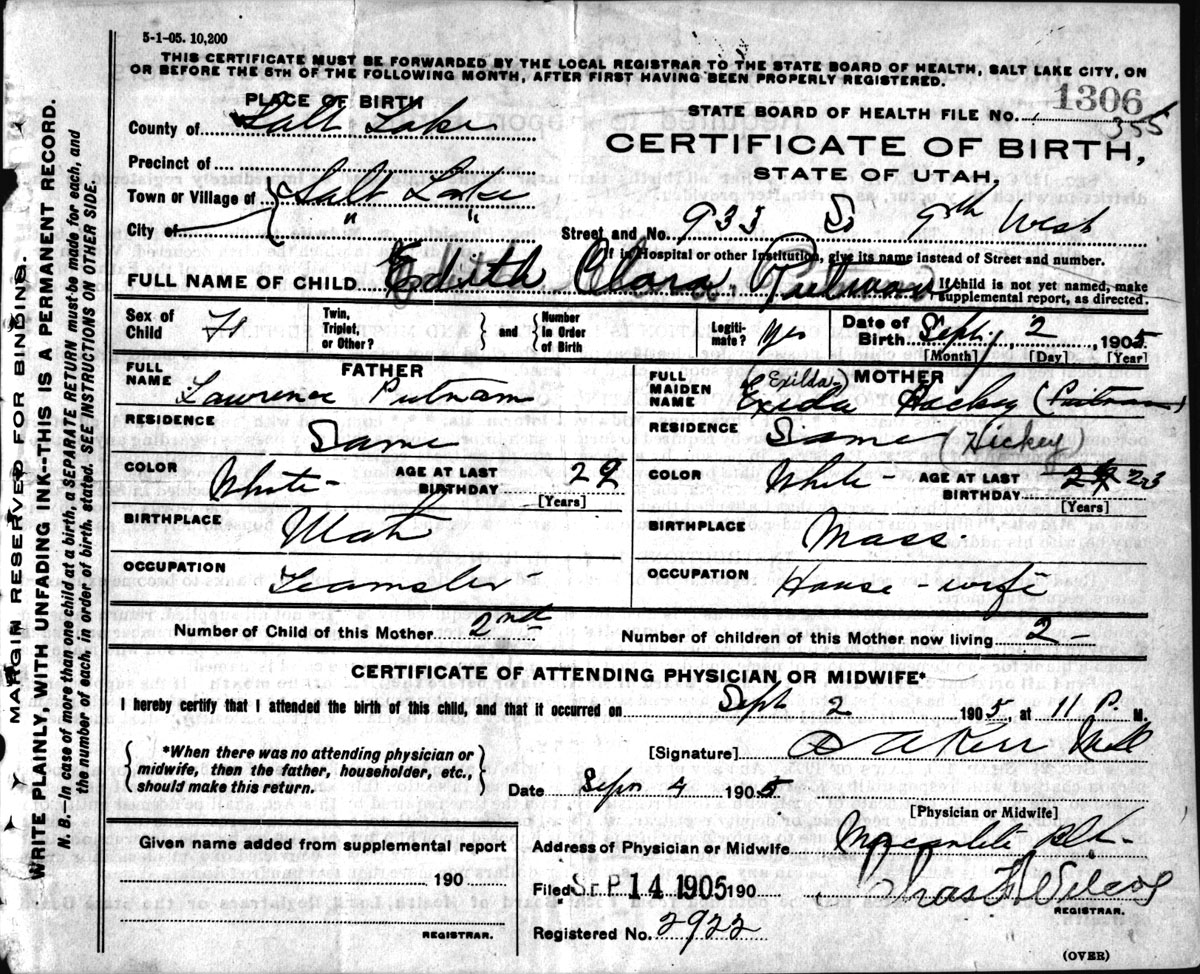 5-1-05. 10,200
THIS CERTIFICATE MUST BE FORWARDED BY THE LOCAL REGISTRAR TO THE STATE BOARD OF HEALTH, SALT LAKE CITY, ON
OR BEFORE THE 5TH OF THE FOLLOWING MONTH, AFTER FIRST HAVING BEEN PROPERLY REGISTERED.
MARGIN RESERVED FOR BINDING.
WRITE PLAINLY WITH UNFADING INK--THIS IS A PERMANENT RECORD.
N. B.--In case of more than one child at a birth, a SEPARATE RETURN must be made for each, and
the number of each, in order of birth, stated. SEE INSTRUCTIONS ON OTHER SIDE.
PLACE OF BIRTH
County of Salt Lake
Precinct of
Town or Village of Salt Lake
City of " "
STATE BOARD OF HEALTH FILE NO. 1306
355
CERTIFICATE OF BIRTH,
STATE OF UTAH.
Street and No. 933 So 9th West
If in Hospital or other Institution, give its name instead of Street and number.
FULL NAME OF CHILD Edith Clara Putnam
If child is not yet named, make
supplemental report, as directed.
Sex of Child
Twin, Triplet, or Other? and Number In Order of Birth
Legitimate? yes
Date of Birth Sept. 2, 1905
[Month] [Day] [Year]
FATHER
FULL NAME Lawrence Putnam
RESIDENCE Same
COLOR White AGE AT LAST BIRTHDAY 29
[Years]
BIRTHPLACE Utah
OCCUPATION Teamster
MOTHER
(Exilda)
FULL MAIDEN NAME Exida Hickey (Putnam)
RESIDENCE Same (Hickey)
COLOR White - AGE AT LAST BIRTHDAY 23
[Years]
BIRTHPLACE Mass.
OCCUPATION House wife
Number of Child of this Mother 2nd
Number of children of this Mother now living 2 -
CERTIFICATE OF ATTENDING PHYSICIAN OR MIDWIFE*
I hereby certify that I attended the birth of this child, and that it occurred on Sept 2 1905, at 11 P. M.
*When there was no attending physician or
midwife, then the father, householder, etc.,
should make this return.
[Signature] Kerr
Date Sept 4 1905
[Physician or Midwife]
Given name added from supplemental report
190
REGISTRAR.
Address of Physician or Midwife Mercantile Blk-
Filed SEP 14 1905 190 Chas Wilcox
REGISTRAR.
Registered No. 2922
(OVER)